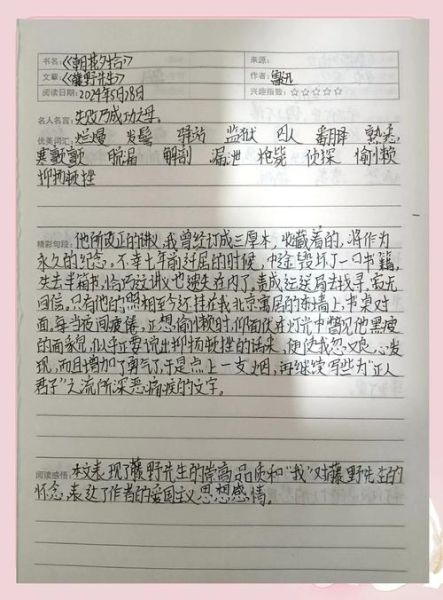 书名:《朝花夕拾》 来源:
文章:《藤野先生》 作者:鲁迅
阅读日期:2024年5月28日 兴趣指数:☆☆☆☆☆
名人名言:失败乃成功之母。
优美词汇: 烂熳 发髻 驿站 监狱 囚人 翻译 熟悉
寒颤颤 脱漏 解剖 漏泄 枪毙 侦探 偷懒
抑扬顿挫
精彩句段:他所改正的讲义,我曾经订成三厚本,收藏着的,将作为
永久的纪念。不幸七年前迁居的时候,中途毁坏了一口书籍,
失去半箱书,恰巧这讲义也遗失在内了。责成运送局去找寻,寂无
回信。只有他的照相至今还挂在我北京寓居的东墙上,书桌对
面。每当夜间疲倦,正想偷懒时,仰面在灯光中瞥见他黑瘦
的面貌,似乎正要说出抑扬顿挫的话来,便使我忽又良心发
现,而且增加了勇气了,于是点上一支烟,再继续写些为“正人
君子”之流所深恶痛疾的文字。
阅读感悟:本文表现了藤野先生的崇高品质和“我”对藤野先生的
怀念,表达了作者的爱国主义思想感情。